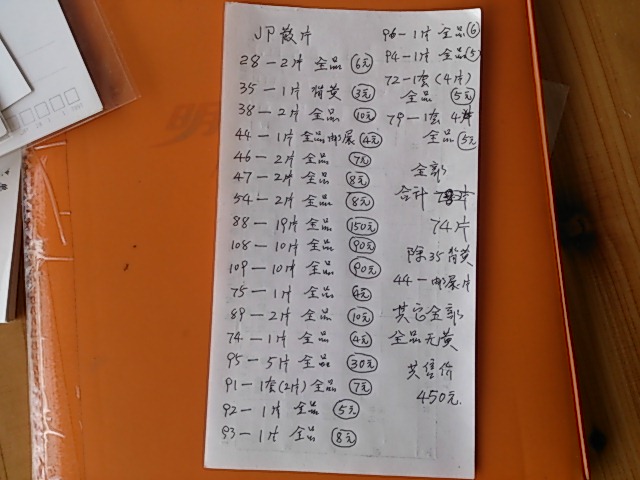 JP散片
28-2片 全品 6元
35-1片 背黄 3元
38-2片 全品 10元
44-1片全品邮展 4元
46-2片 全品 7元
47-2片 全品 8元
54-2片 全品 8元
88-19片 全品 150元
108-10片 全品 90元
109-10片 全品 90元
75-1片 全品 4元
89-2片 全品 10元
74-1片 全品 4元
95-5片 全品 30元
91-1套(2片)全品 7元
92-1片 全品 5元
93-1片 全品 8元
96-1片 全品 6
94-1片 全品 5
72-1套(4片)
全品 5元
79-1套 4片
全品 5元
全部
合计
74片
除35背黄
44-邮展片
其它全部
全品无黄
共售价
450元.